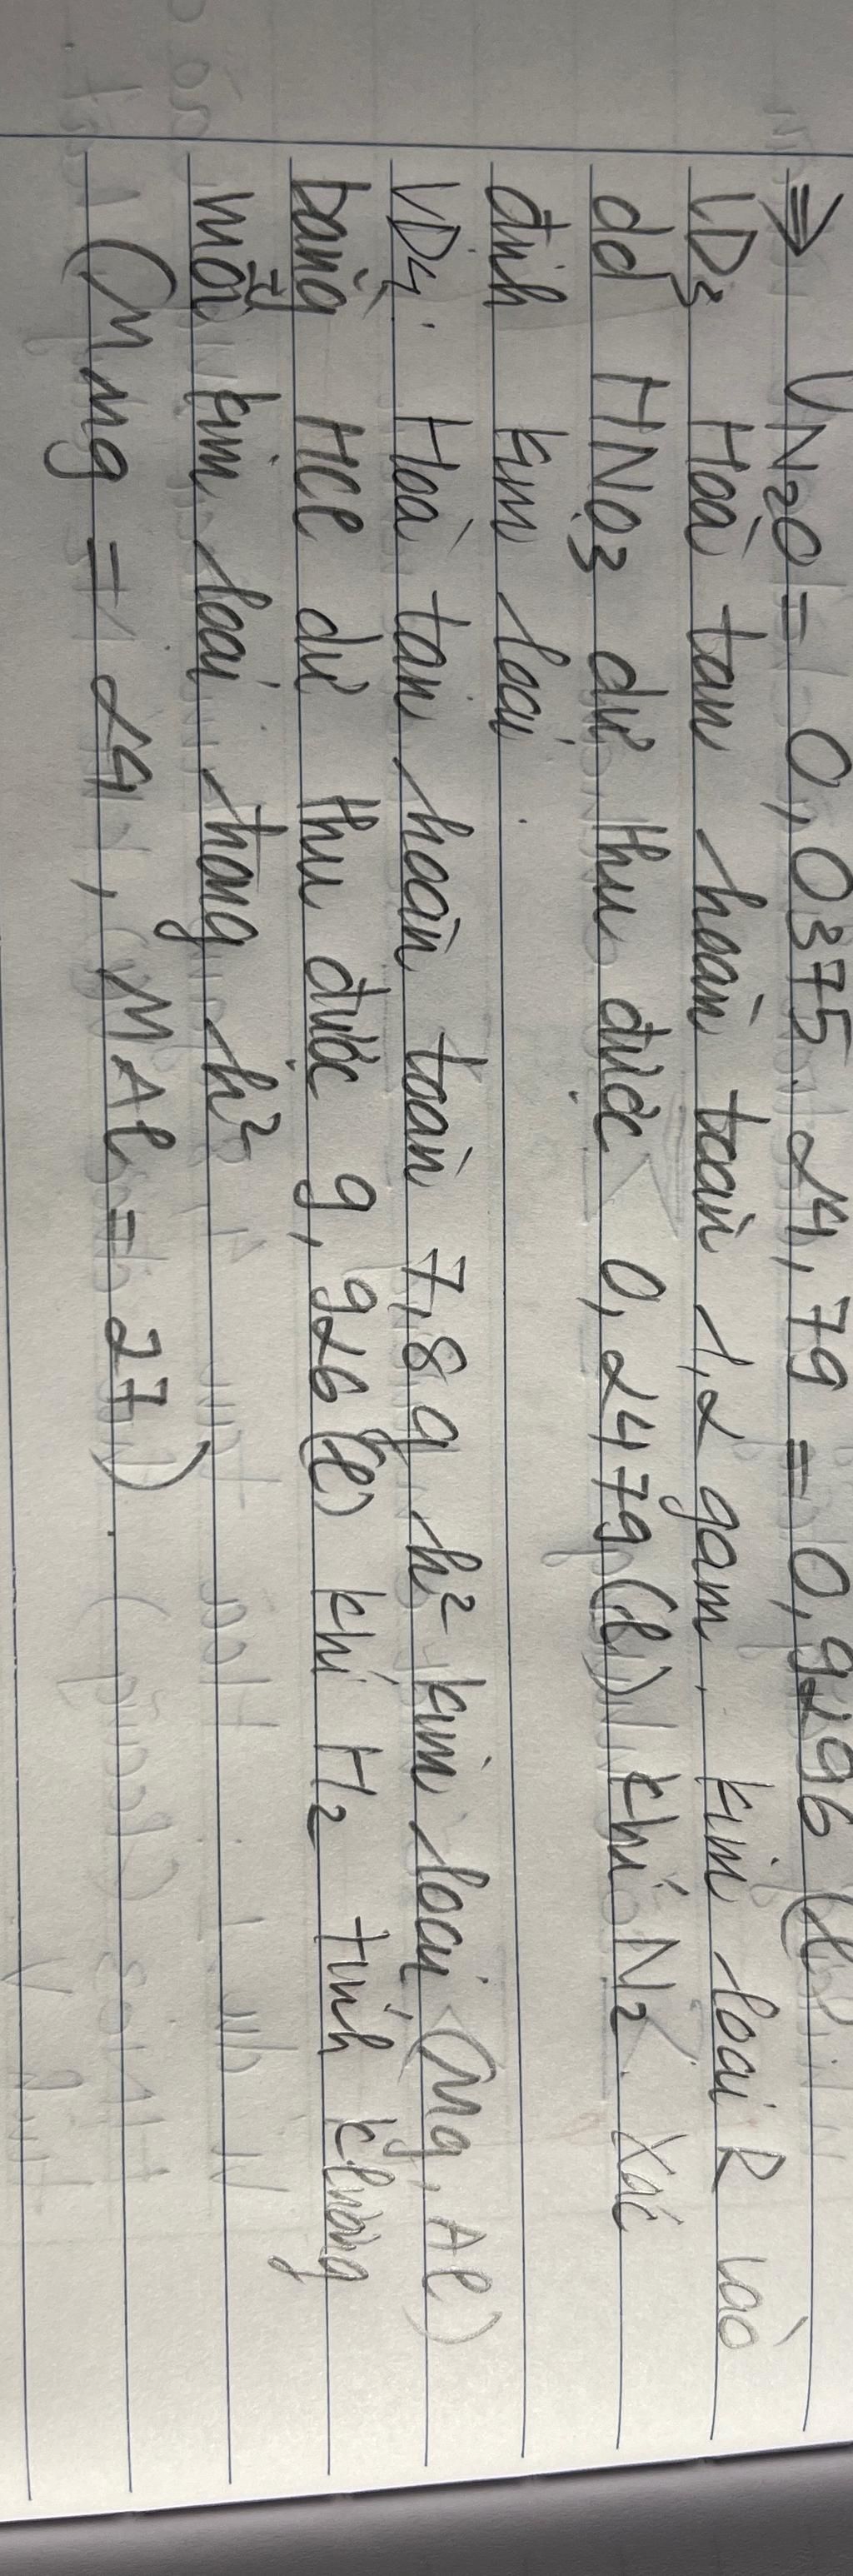 ⇒ VN2O = 0,0375. 24,79 = 0,9296 (l)
VD3 Hoà tan hoàn toàn 1,2 gam. kim loại R vào
dd HNO3 dư thu được 0,2479 (l) khí N2. Xác
định kim loại.
VD4: Hoà tan hoàn toàn 7,8g h² kim loại (Mg, Al)
bằng HCl dư thu được 9,926 (l) khí H2 tính klượng
mỗi kim loại trong h²
(MMg = 24, MAl = 27).